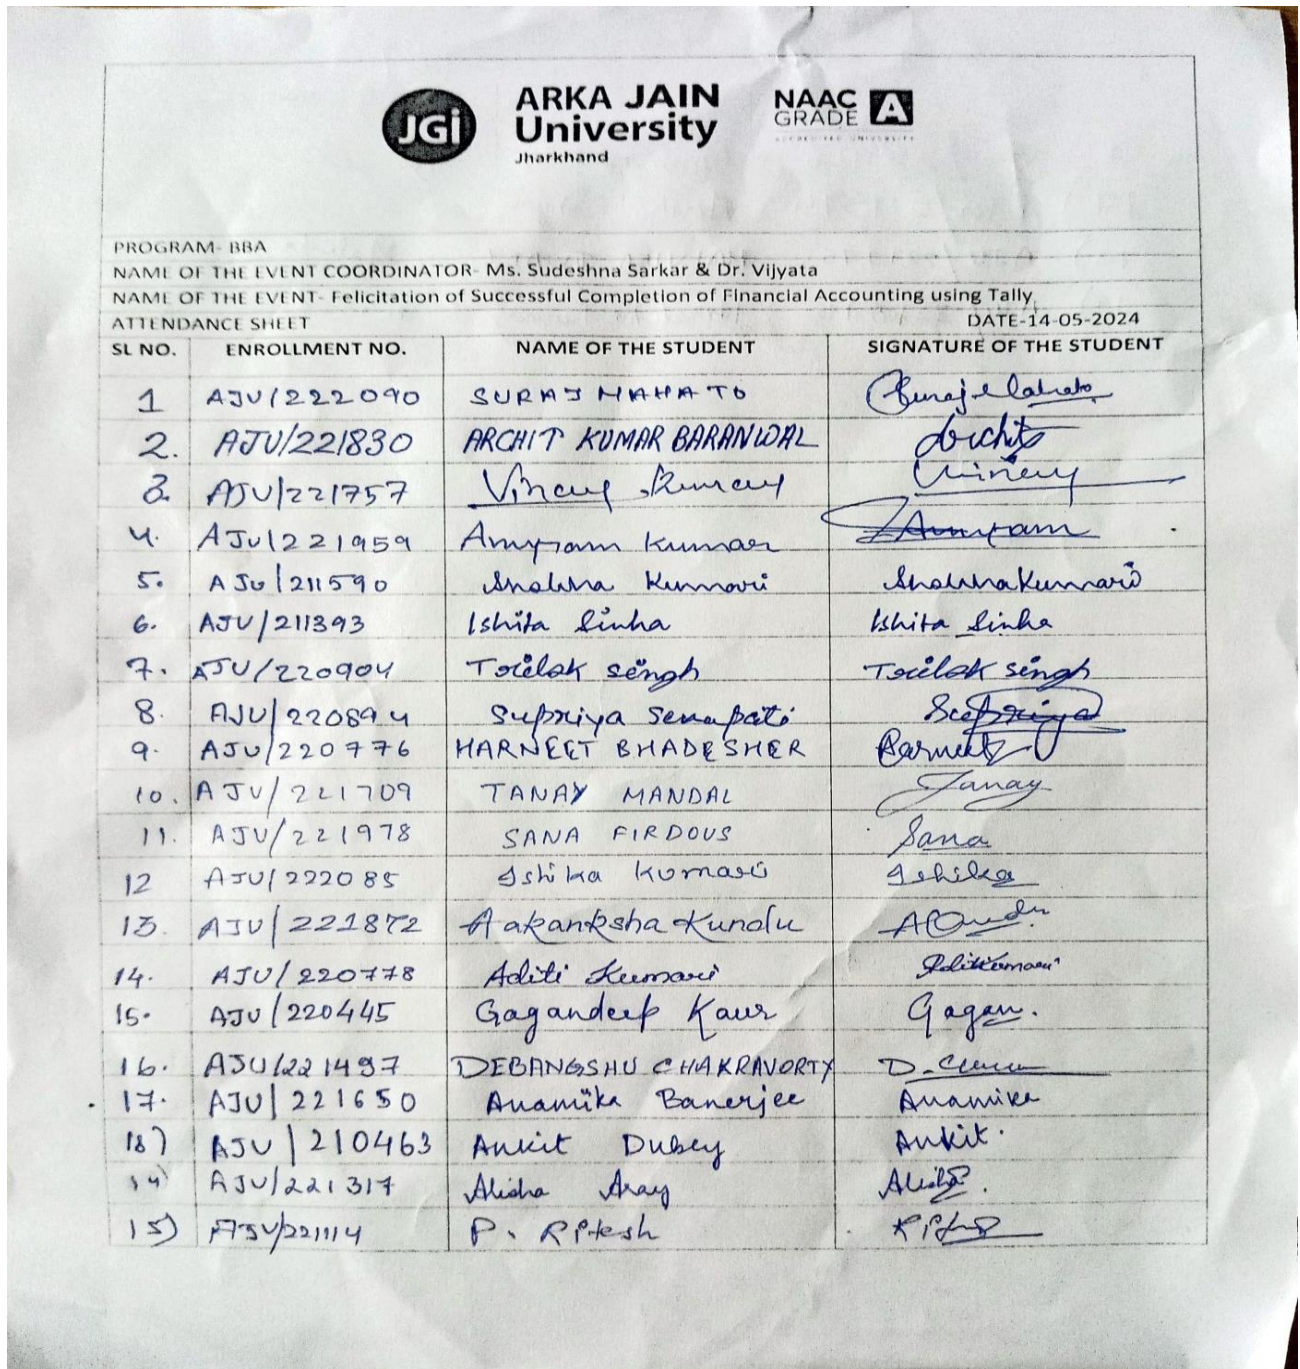 JGi ARKA JAIN University Jharkhand NAAC GRADE A
ACCREDITED UNIVERSITY
PROGRAM- BBA
NAME OF THE EVENT COORDINATOR- Ms. Sudeshna Sarkar & Dr. Vijyata
NAME OF THE EVENT- Felicitation of Successful Completion of Financial Accounting using Tally
ATTENDANCE SHEET DATE-14-05-2024
SL NO. ENROLLMENT NO. NAME OF THE STUDENT SIGNATURE OF THE STUDENT
1 AJU/222090 SURAJ MAHATO Suraj Mahato
2. AJU/221830 ARCHIT KUMAR BARANWAL Archit
3. AJU/221757 Vinay Kumar Vinay
4. AJU/221959 Anupam Kumar Anupam
5. AJU/211590 Kumari Kumari
6. AJU/211393 Ishita Sinha Ishita Sinha
7. AJU/220904 Trilok Singh Trilok Singh
8. AJU/220894 Supriya Senapati Supriya
9. AJU/220776 HARNEET BHADESHER Harneet
10. AJU/221709 TANAY MANDAL Tanay
11. AJU/221978 SANA FIRDOUS Sana
12 AJU/222085 Ishika Kumari Ishika
13. AJU/221872 Aakanksha Kundu
14. AJU/220778 Aditi Kumari Aditi Kumari
15. AJU/220445 Gagandeep Kaur Gagan.
16. AJU/221497 DEBANGSHU CHAKRAVORTY
17. AJU/221650 Anamika Banerjee Anamika
18) AJU/210463 Ankit Dubey Ankit.
14) AJU/221317 Alisha Aray Alisha.
15) AJU/221114 P. Ritesh